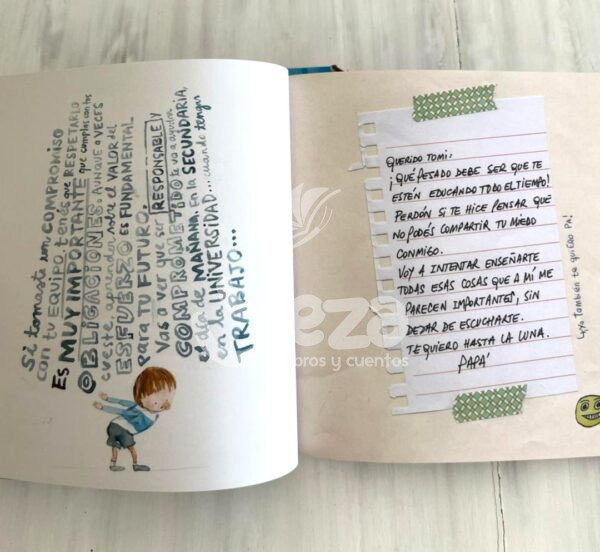 Si tomaste un COMPROMISO
con tu EQUIPO, tenés que RESPETARLO
Es MUY IMPORTANTE que cumplas con tus
OBLIGACIONES. AUNQUE A VECES
cueste aprender sobre el VALOR del
ESFUERZO ES FUNDAMENTAL
para TU FUTURO.
Vas a ver que ser RESPONSABLE Y
COMPROMETIDO te va a ayudar
el día de MAÑANA, en la SECUNDARIA,
en la UNIVERSIDAD... cuando tengas
TRABAJO...
QUERIDO TOMI:
¡QUÉ PESADO DEBE SER QUE TE
ESTÉN EDUCANDO TODO EL TIEMPO!
PERDÓN SI TE HICE PENSAR QUE
NO PODÉS COMPARTIR TU MIEDO
CONMIGO.
VOY A INTENTAR ENSEÑARTE
TODAS ESAS COSAS QUE A MÍ ME
PARECEN IMPORTANTES, SIN
DEJAR DE ESCUCHARTE.
TE QUIERO HASTA LA LUNA.
PAPÁ
¡Yo También te quiero Pa!
eza
bros y cuentos